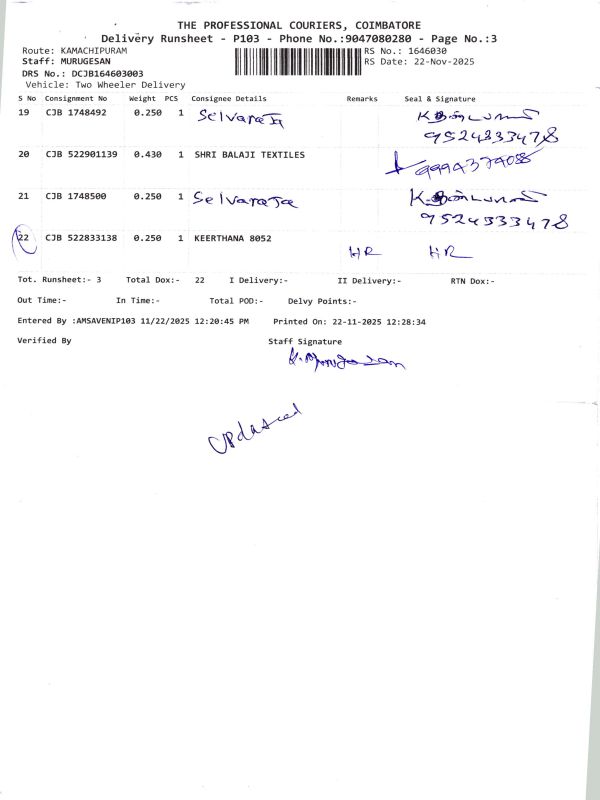 THE PROFESSIONAL COURIERS, COIMBATORE
Delivery Runsheet - P103 - Phone No.:9047080280 - Page No.:3
Route: KAMACHIPURAM RS No.: 1646030
Staff: MURUGESAN RS Date: 22-Nov-2025
DRS No.: DCJB164603003
Vehicle: Two Wheeler Delivery
S No Consignment No Weight PCS Consignee Details Remarks Seal & Signature
19 CJB 1748492 0.250 1 Selvaraja
9524333478
20 CJB 522901139 0.430 1 SHRI BALAJI TEXTILES
21 CJB 1748500 0.250 1 Selvaraja
9524333478
22 CJB 522833138 0.250 1 KEERTHANA 8052
HR HR
Tot. Runsheet:- 3 Total Dox:- 22 I Delivery:- II Delivery:- RTN Dox:-
Out Time:- In Time:- Total POD:- Delvy Points:-
Entered By :AMSAVENIP103 11/22/2025 12:20:45 PM Printed On: 22-11-2025 12:28:34
Verified By Staff Signature
K. Murugesan
Updated